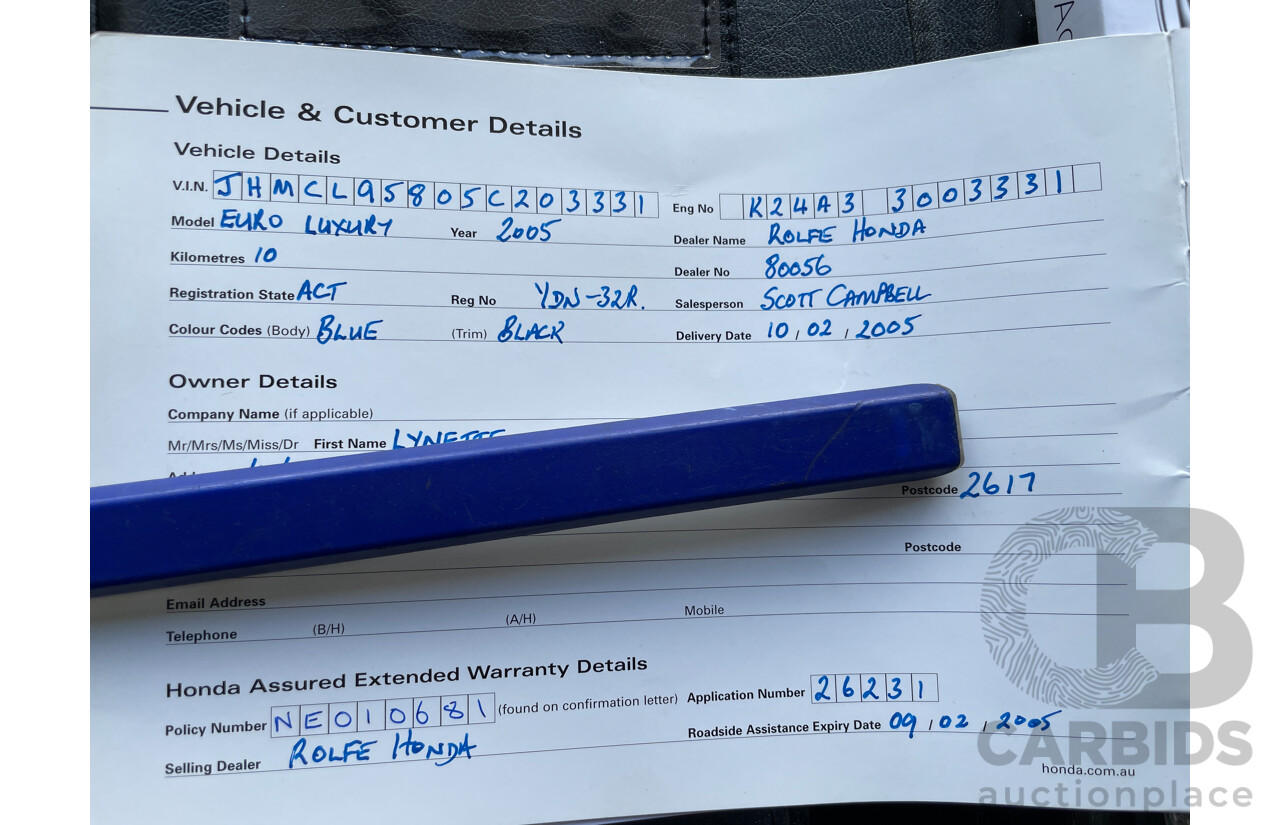 Vehicle & Customer Details
Vehicle Details
V.I.N. JHMCL95805C203331 Eng No K24A3 3003331
Model EURO LUXURY Year 2005 Dealer Name ROLFE HONDA
Kilometres 10 Dealer No 80056
Registration State ACT Reg No YDN-32R. Salesperson SCOTT CAMPBELL
Colour Codes (Body) BLUE (Trim) BLACK Delivery Date 10/02/2005
Owner Details
Company Name (if applicable)
Mr/Mrs/Ms/Miss/Dr First Name LYNETTE
Postcode 2617
Postcode
Email Address
Telephone (B/H) (A/H) Mobile
Honda Assured Extended Warranty Details
Policy Number NE010681 (found on confirmation letter) Application Number 26231
Selling Dealer ROLFE HONDA Roadside Assistance Expiry Date 09/02/2005
honda.com.au
CB
CARBIDS
auctionplace